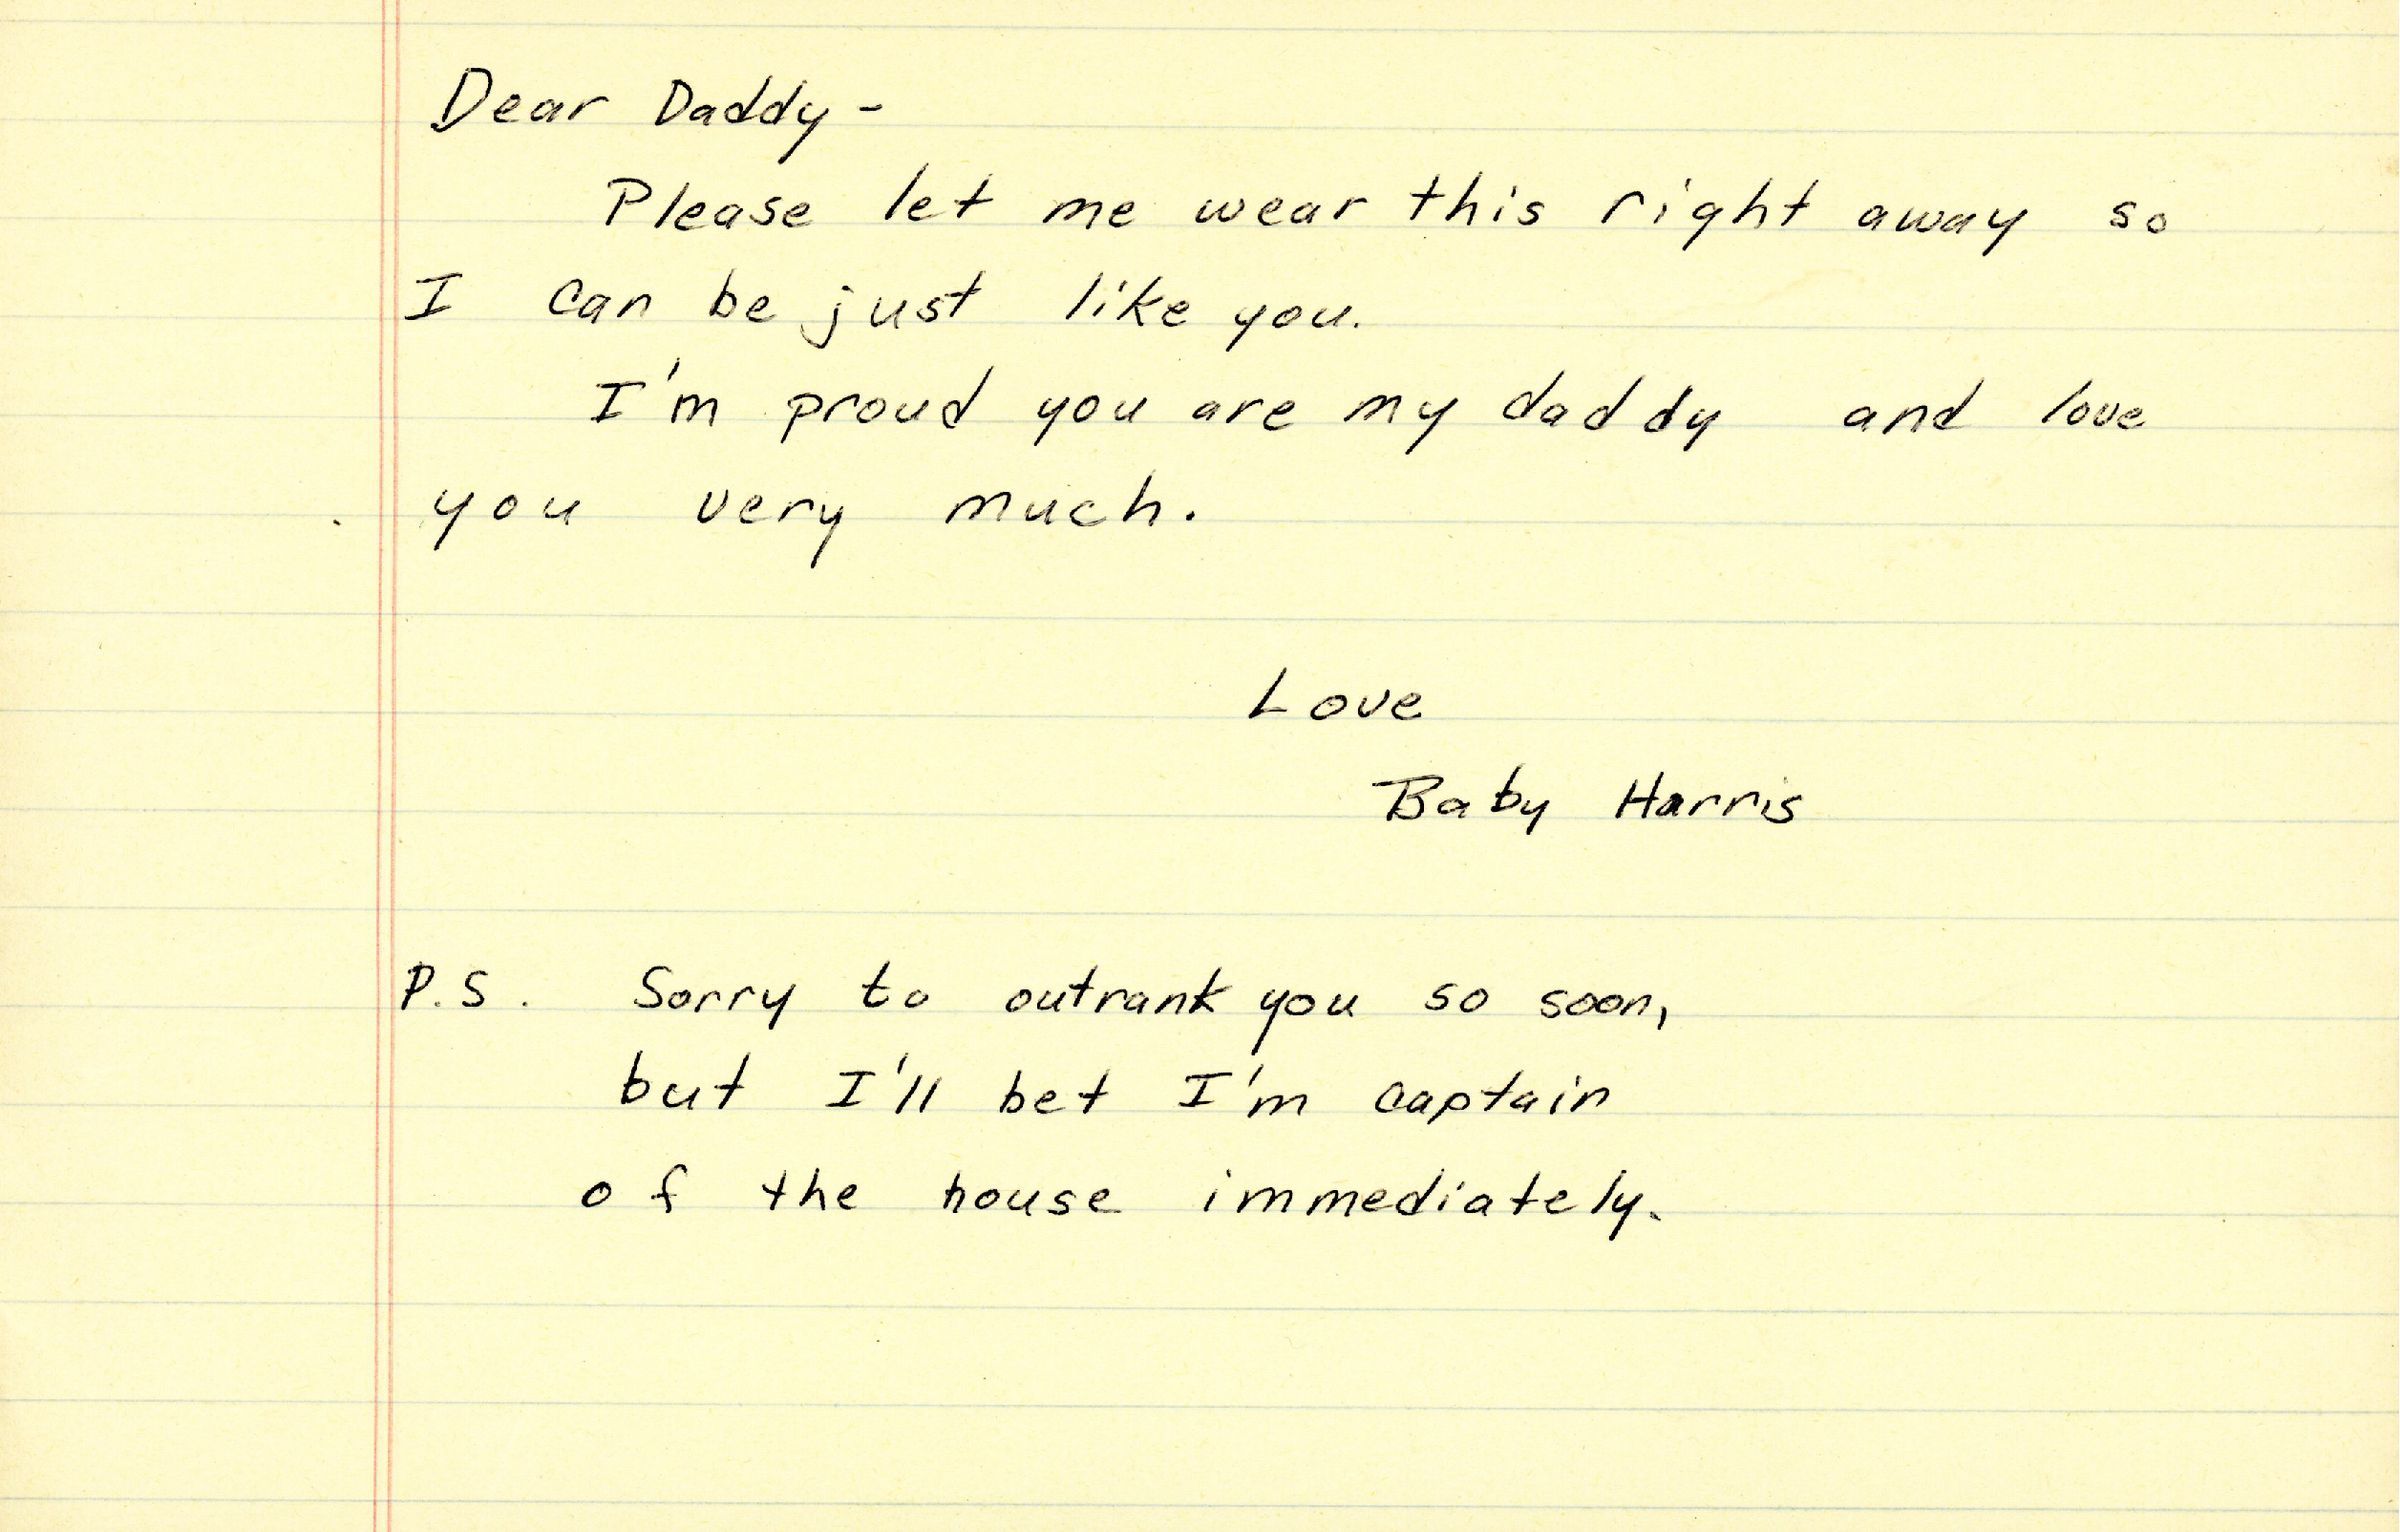 Dear Daddy -
Please let me wear this right away so
I can be just like you.
I'm proud you are my daddy and love
you very much.
Love
Baby Harris
P.S. Sorry to outrank you so soon,
but I'll bet I'm captain
of the house immediately.